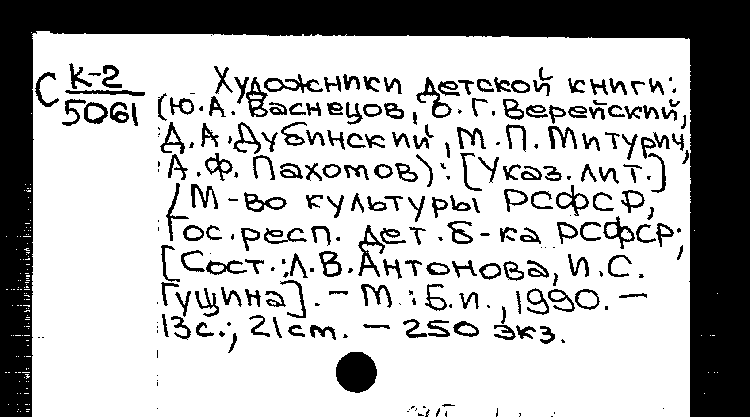 С К-2
5061
Художники детской книги:
(Ю.А. Васнецов, О.Г. Верейский,
Д.А. Дубинский, М.П. Митурич,
А.Ф. Пахомов): [Указ. лит.]
/ М-во культуры РСФСР,
Гос. респ. дет. б-ка РСФСР;
[Сост.: Л.В. Антонова, И.С.
Гущина]. — М.: Б.и., 1990. —
13с.; 21см. — 250 экз.